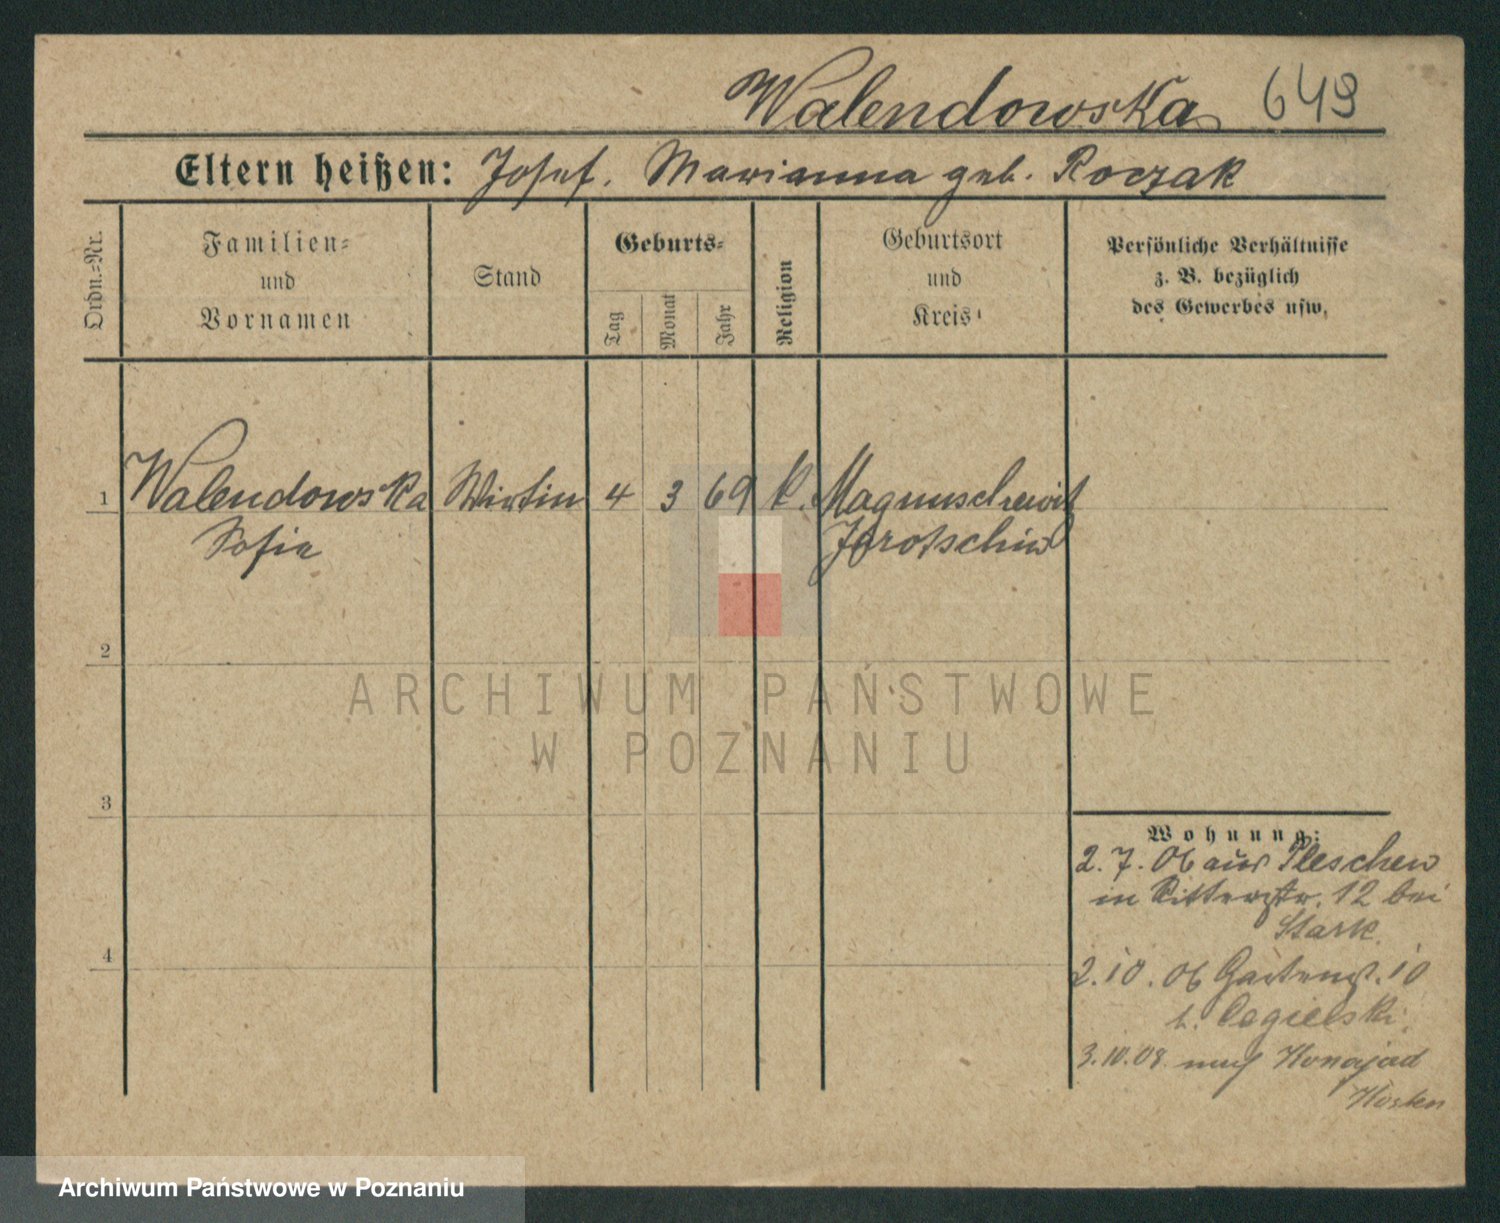 Walendowska 649
Eltern heißen: Josef. Marianna geb. Roczak
Ordn.-Nr.
Familien-
und
Vornamen
Stand
Geburts-
Tag
Monat
Jahr
Religion
Geburtsort
und
Kreis
Persönliche Verhältnisse
z. B. bezüglich
des Gewerbes usw.
1 Walendowska Wirtin 4 3 69 k. Magnuschewitz
Sofie Jarotschin
2
3
4
Wohnung:
2. 7. 06 aus Pleschen
in Ritterstr. 12 bei
Stark.
2. 10. 06 Gartenst. 10
b. Cegielski.
3. 10. 08. nach Konojad
Kosten
ARCHIWUM PAŃSTWOWE
W POZNANIU
Archiwum Państwowe w Poznaniu